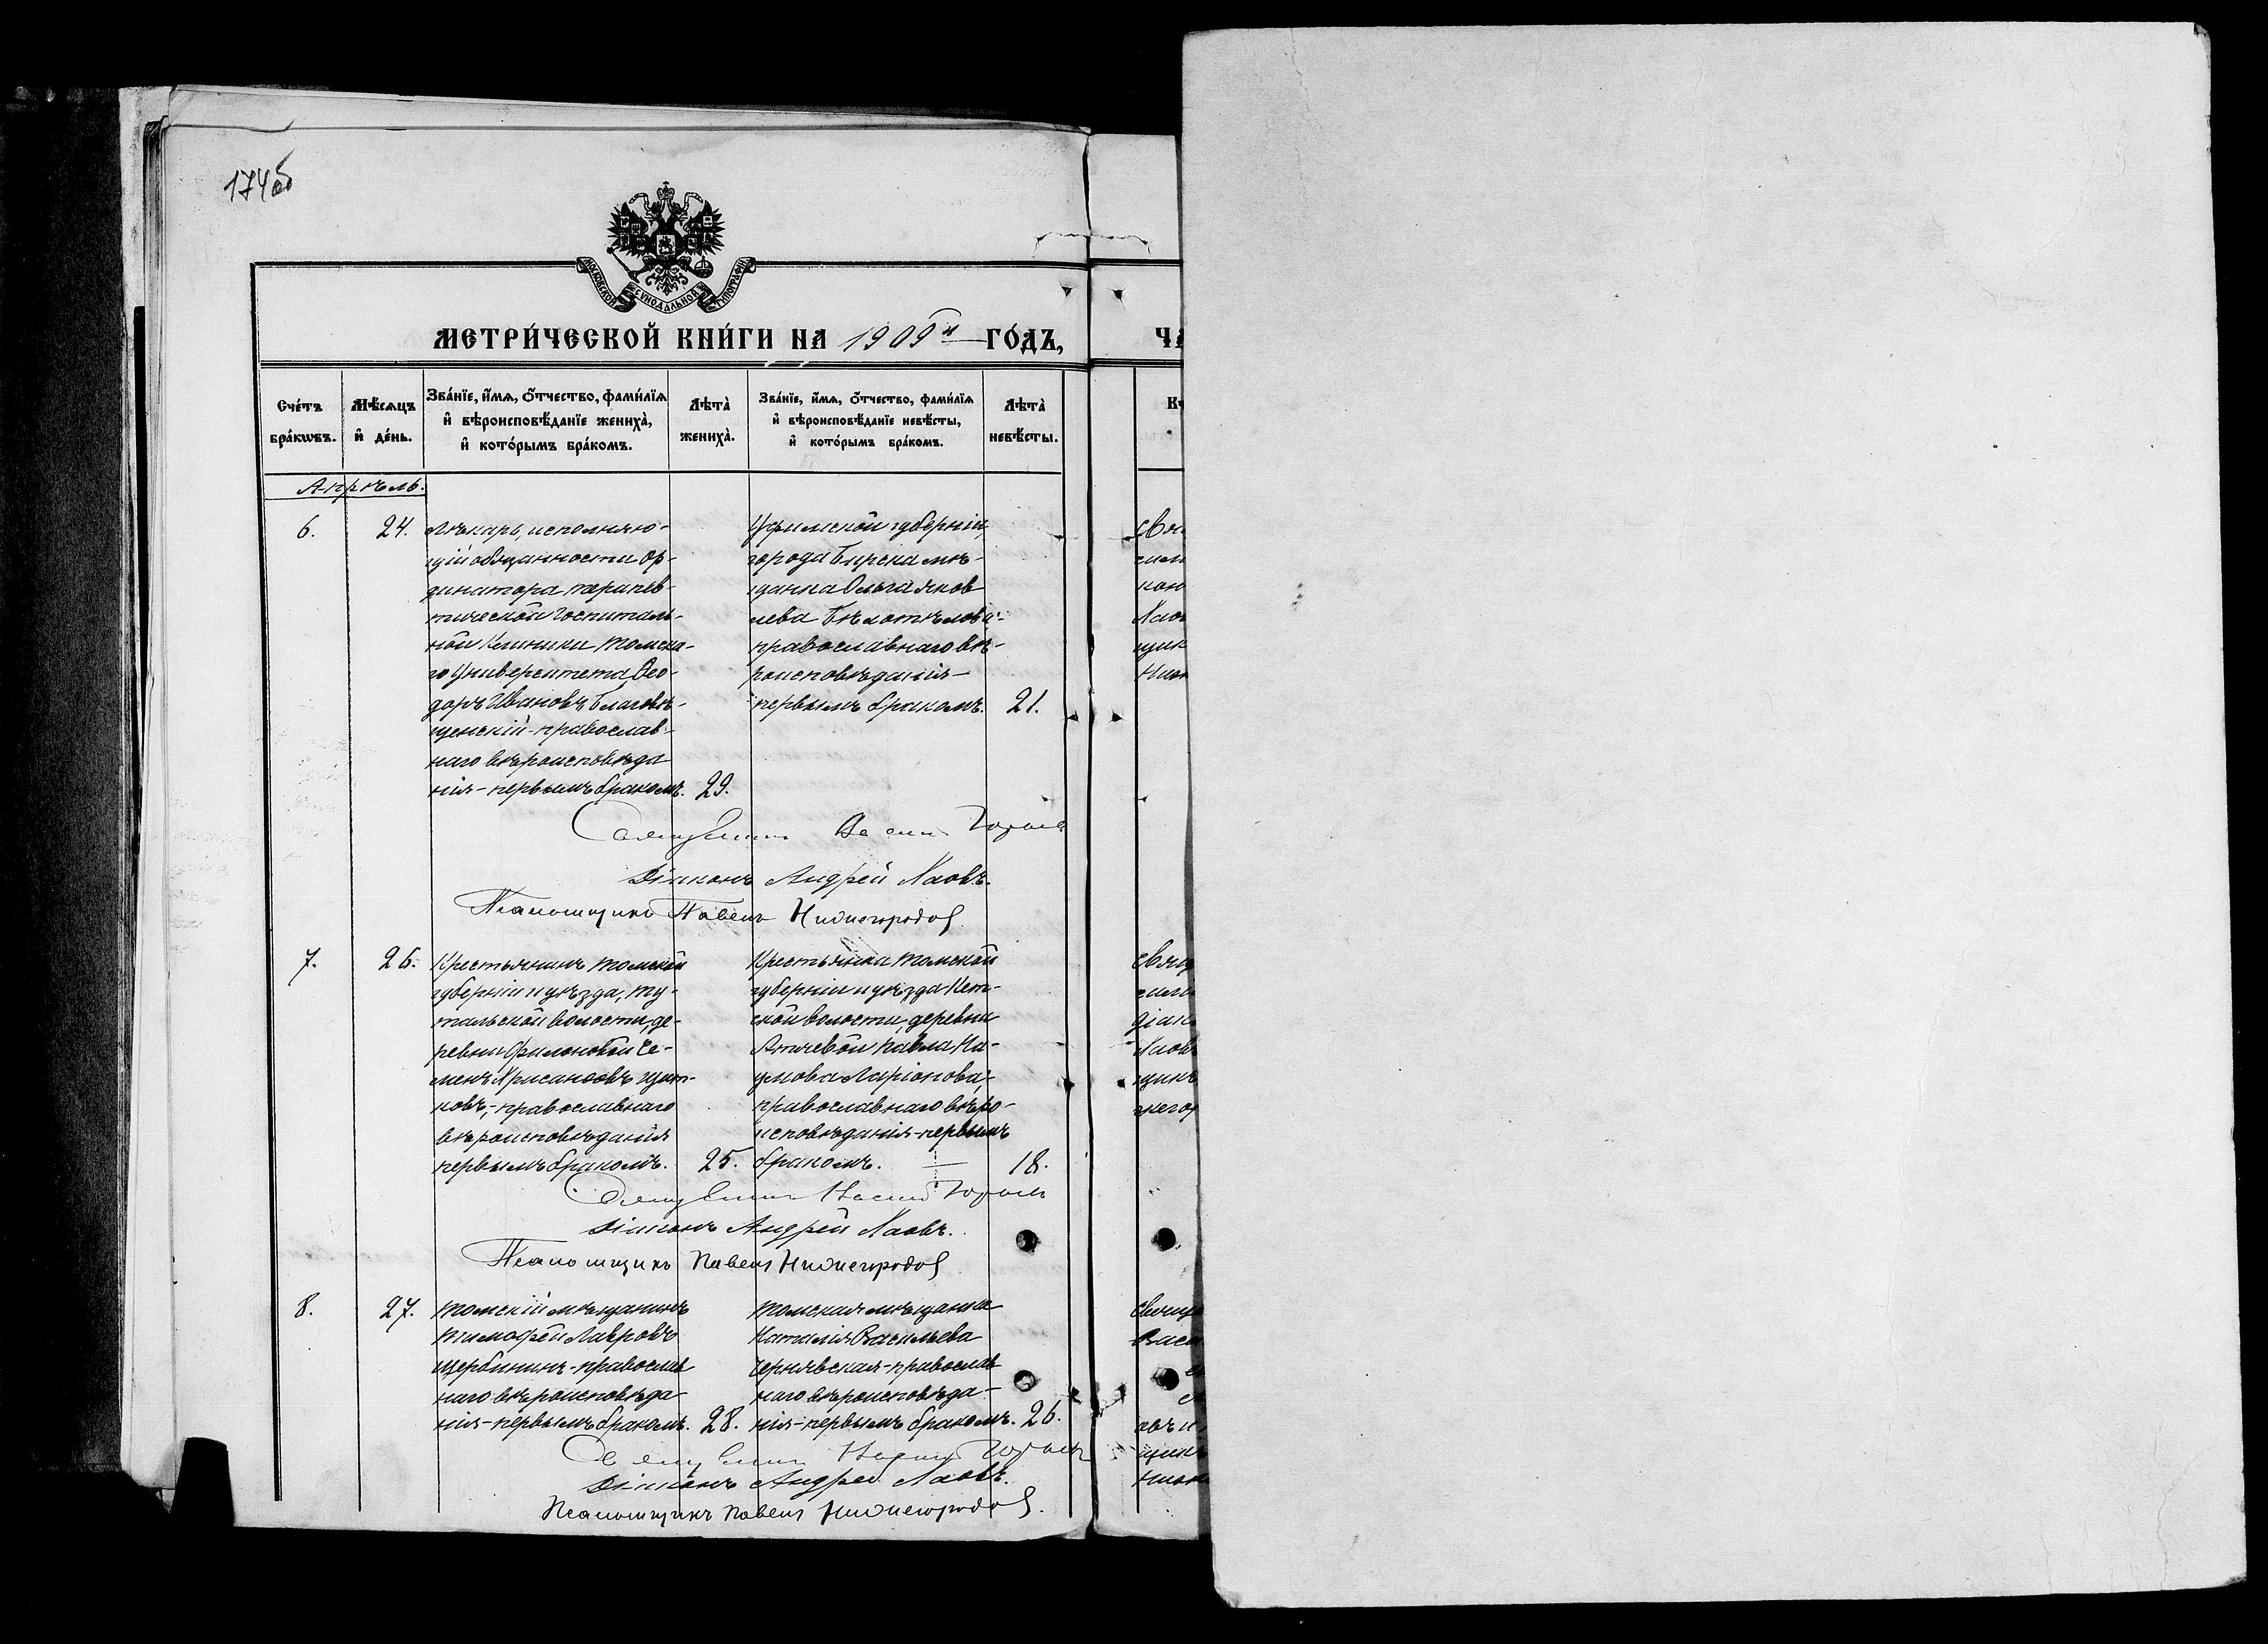 174об
МОСКОВСКОЙ СѴНОДАЛЬНОЙ ТИПОГРАФІИ
МЕТРИ́ЧЕСКОЙ КНИ́ГИ НА 1909й ГО́ДЪ,
Сче́тъ бра́кѡвъ.
Мѣ́сѧцъ и҆ де́нь.
Зва́нїе, и҆́мѧ, ѻ҆́тчество, фами́лїѧ и҆ вѣроисповѣ́данїе жениха̀, и҆ кото́рымъ бра́комъ.
Лѣта̀ жениха̀.
Зва́нїе, и҆́мѧ, ѻ҆́тчество, фами́лїѧ и҆ вѣроисповѣ́данїе невѣ́сты, и҆ кото́рымъ бра́комъ.
Лѣта̀ невѣ́сты.
Апрѣль.
6.
24.
Лѣкарь, исполняю-
щій обязанности ор-
динатора терапев-
тической госпиталь-
ной Клиники Томска-
го Университета Ѳео-
доръ Ивановъ Благовѣ-
щенскій - православ-
наго вѣроисповѣда
нія - первымъ бракомъ.
29.
Уфимской губерніи,
города Бирска мѣ-
щанка Ольга Яков
лева Бѣлотѣлова -
православнаго вѣ-
роисповѣданія -
первымъ бракомъ.
21.
Діаконъ Андрей Лаовъ.
Псаломщикъ Павелъ Нижегородов
7.
26.
Крестьянинъ Томской
губерніи и уѣзда, Ту-
тальской волости, де-
ревни Филоновой Се-
менъ Хрисанфовъ
православнаго
вѣроисповѣданія
первымъ бракомъ.
25.
Крестьянка Томской
губерніи и уѣзда Кет-
ской волости, деревни
Павла На-
умова Ларіонова,
православнаго вѣро-
исповѣданія - первымъ
бракомъ.
18.
Діаконъ Андрей Лаовъ.
Псаломщикъ Павелъ Нижегородов
8.
27.
Томскій мѣщанинъ
Тимофей Лавровъ
Щербининъ - православ
наго вѣроисповѣда-
нія - первымъ бракомъ.
28.
Томская мѣщанка
Наталія Васильева
Чернявская - православ
наго вѣроисповѣда-
нія - первымъ бракомъ.
26.
Діаконъ Андрей Лаовъ.
Псаломщикъ Павелъ Нижегородов.